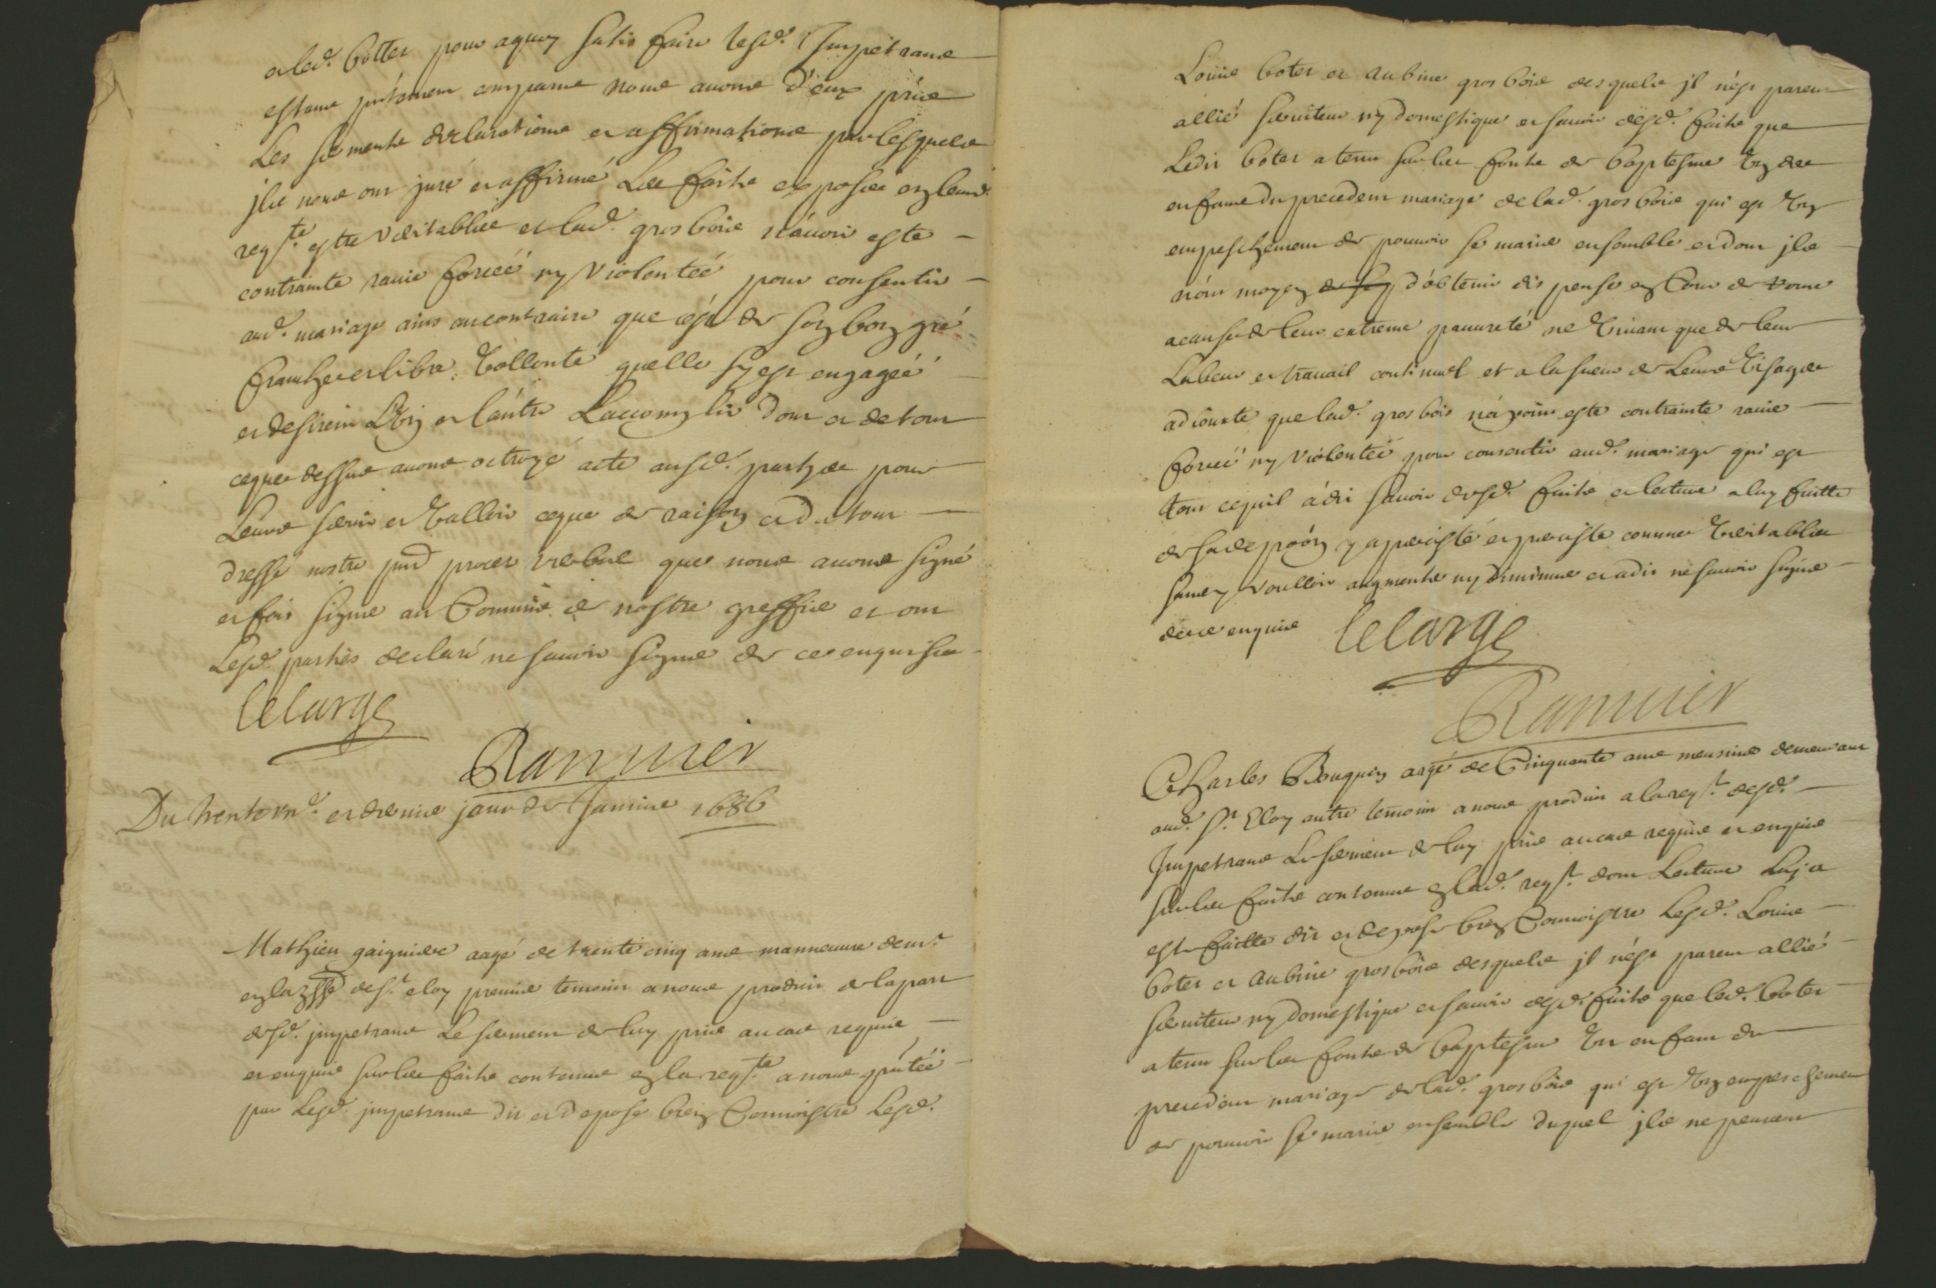 et led. botter pour a quoy satisfaire lesd. Impetrans
estans presentement comparus nous avons d'eux pris
Les serments declarations et affirmations par lesquels
ils nous ont juré et affirmé Les faits exposez en leurd.
reqte. estre veritables et lad. grosbois n'avoir esté
contrainte ravie forcéé ny violentéé pour consentir
aud. mariage ains aucontraire que c'est de son bon gré
franche et libre vollonté quelle s'y est engagéé
et desirent L'un et l'autre L'accomplir dont et de tout
ceque dessus avons octroyé acte ausd. partyes pour
Leurs servir et valloir ceque de raison et du tout
dressé nostre pnt proces verbal que nous avons signé
et fait signer au Commis de nostre greffier et ont
Lesd. parties declaré ne savoir signer de ce enquises
Lelarge
Rannuier
Du trente unе. et dernier jour de Janvier 1686
Mathieu gaigniere aagé de trente cinq ans manneuvre demt.
en la psse de st. eloy premier temoin a nous produit de la part
desd. impetrans Le serment de luy pris au cas requis
et enquis sur les faits contenus en la reqte. a nous pntéé
par Lesd. impetrans dit et depose bien Connoistre Lesd.
Louis boter et aubine grosbois desquels il n'est parent
allié serviteur ny domestique et savoir desd. faits que
Ledit boter a tenu sur les fonts de baptesme un des
enfans du precedent mariage de lad. grosbois qui est un
empeschement de pouvoir se marier ensemble et dont ils
n'ont moyen d'obtenir dispense en Cour de rome
a cause de leur extreme pauvreté ne vivant que de leur
Labeur et travail continuel et a la sueur de Leurs visages
adjouste que lad. grosbois n'a point esté contrainte ravie
forcéé ny violentéé pour consentir aud. mariage qui est
tout ce qu'il a dit savoir desd. faits et lecture a luy faitte
de sa depoon y a persisté et persiste comme veritable
sans y voulloir augmenter ny diminuer et a dit ne savoir signer
de ce enquis
Lelarge
Rannuier
Charles Bouquin aagé de Cinquante ans meusnier demeurant
aud. St. Eloy autre temoin a nous produit a la reqt. desd.
Impetrans Le serment de luy pris au cas requis et enquis
sur les faits contenus en lad. reqt. dont Lecture Luy a
esté faitte dit et depose bien Connoistre Lesd. Louis
boter et aubine grosbois desquels il n'est parent allié
serviteur ny domestique et savoir desd. faits que led. boter
a tenu sur les fonts de baptesme un enfant du
precedent mariage de lad. grosbois qui est un empeschement
de pouvoir se marier ensemble duquel ils ne peuvent